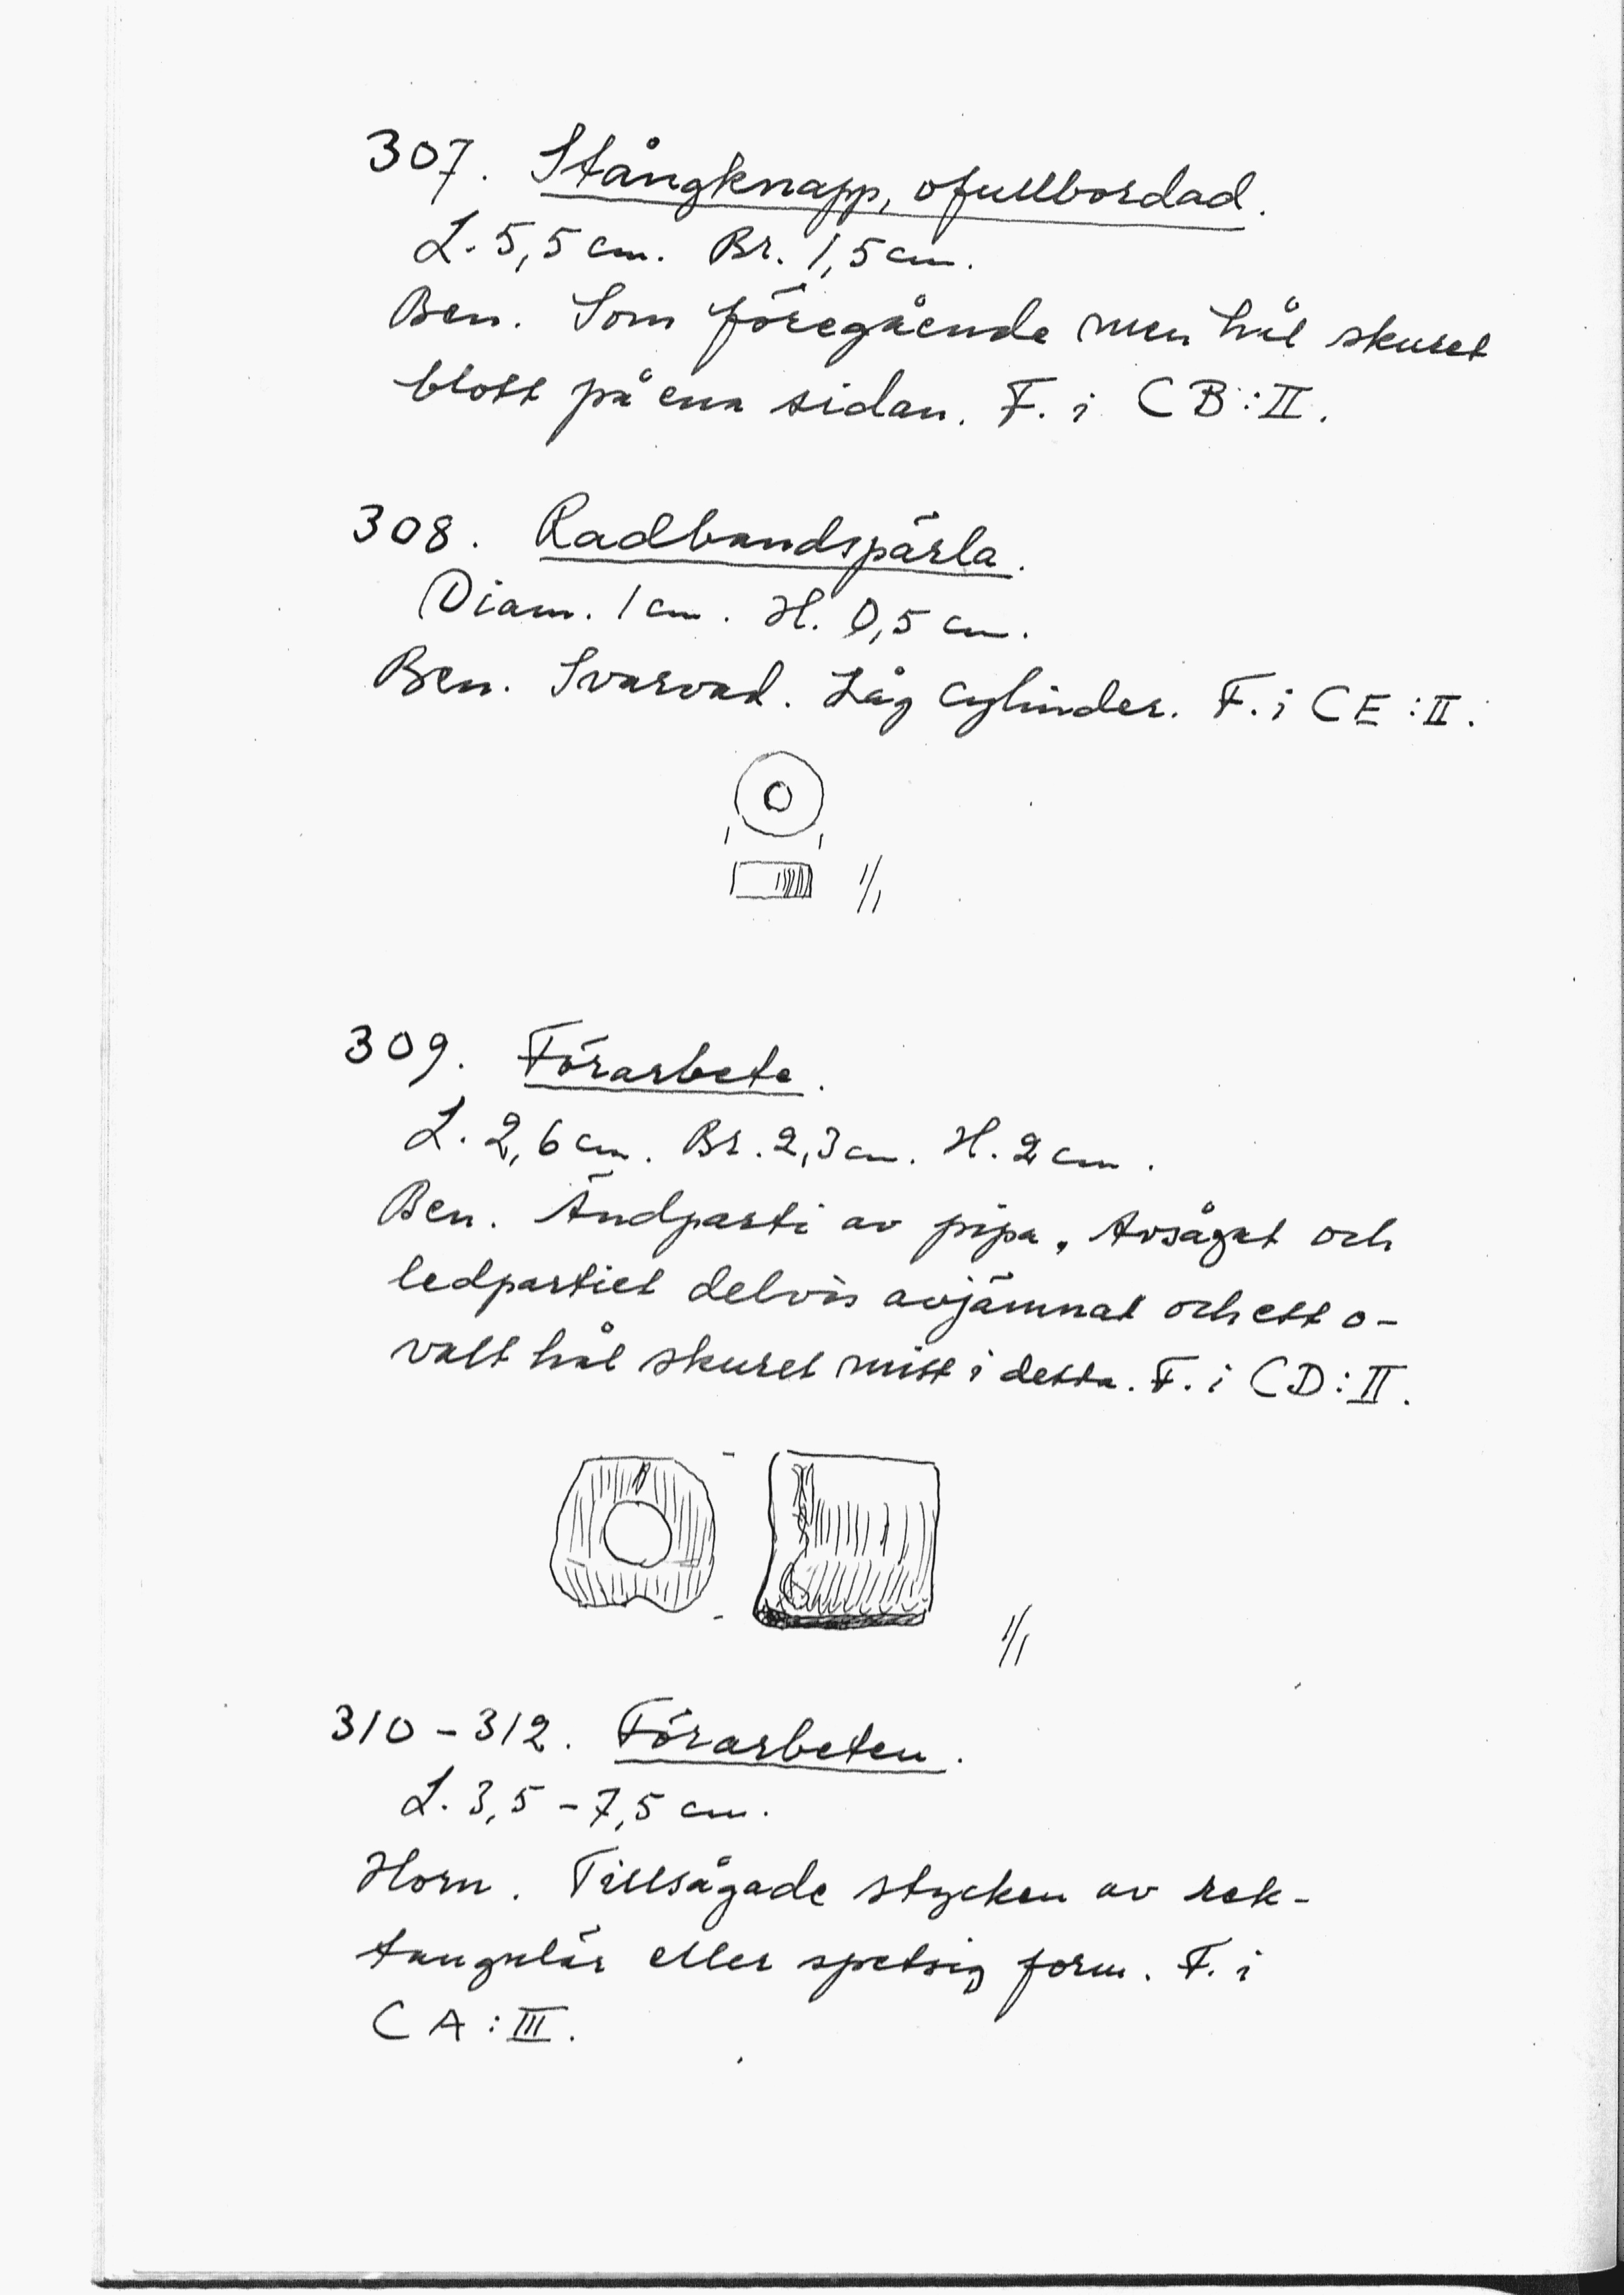 307. Stångknapp, ofullbordad.
L. 5,5 cm. Br. 1,5 cm.
Ben. Som föregående men hål skuret
blott på ena sidan. F. i CB:II.
308. Radbandspärla.
Diam. 1 cm. H. 0,5 cm.
Ben. Svarvad. Låg cylinder. F. i CE:II.
1/1
309. Förarbete.
L. 2,6 cm. Br. 2,3 cm. H. 2 cm.
Ben. Ändparti av pipa. Avsågat och
ledpartiet delvis avjämnat och ett o-
valt hål skuret mitt i detta. F. i CD:II.
1/1
310-312. Förarbeten.
L. 3,5-7,5 cm.
Horn. Tillsågade stycken av rek-
tangulär eller spetsig form. F. i
CA:III.